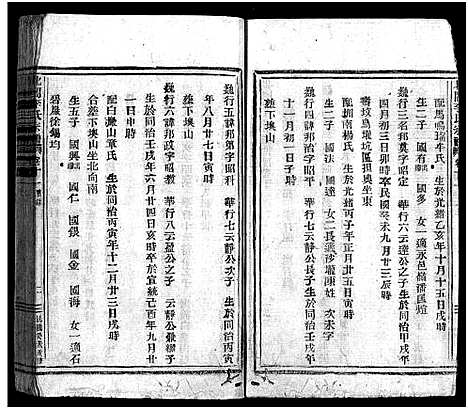 配馬鳴瑞牛氏 生於光緒乙亥年十月十五日戌時
生二子 國有 國多 女一適永邑潘匡煊
巍行三名邦莫字昭定 華行六云達公之子 生於同治甲戌年
四月初三日卯時卒民國癸未九月廿三辰時
配湖南楊氏 生於光緒丙子年正月廿五日寅時
生二子 國法 國連 女二長適沙墩陳姓 次未字
巍行四諱邦治字昭平 華行七云靜公長子 生於同治壬戌年
十一月初三日寅時
葬下墺山
巍行五諱邦第字昭科 華行七云靜公次子 生於同治丙寅
年八月廿七日寅時
葬下墺山
巍行六諱邦政字昭教 華行八云盈公之子 云靜公繼子
生於同治壬戌年六月廿四日亥時卒於宣統己酉年九月廿
一日申時
配白巖山章氏 生於同治丙寅年十二月廿三日戌時
合葬下墺山坐北向南
生五子 國興 國仁 國銀 國金 國海 女一適石
碧巖徐錫均